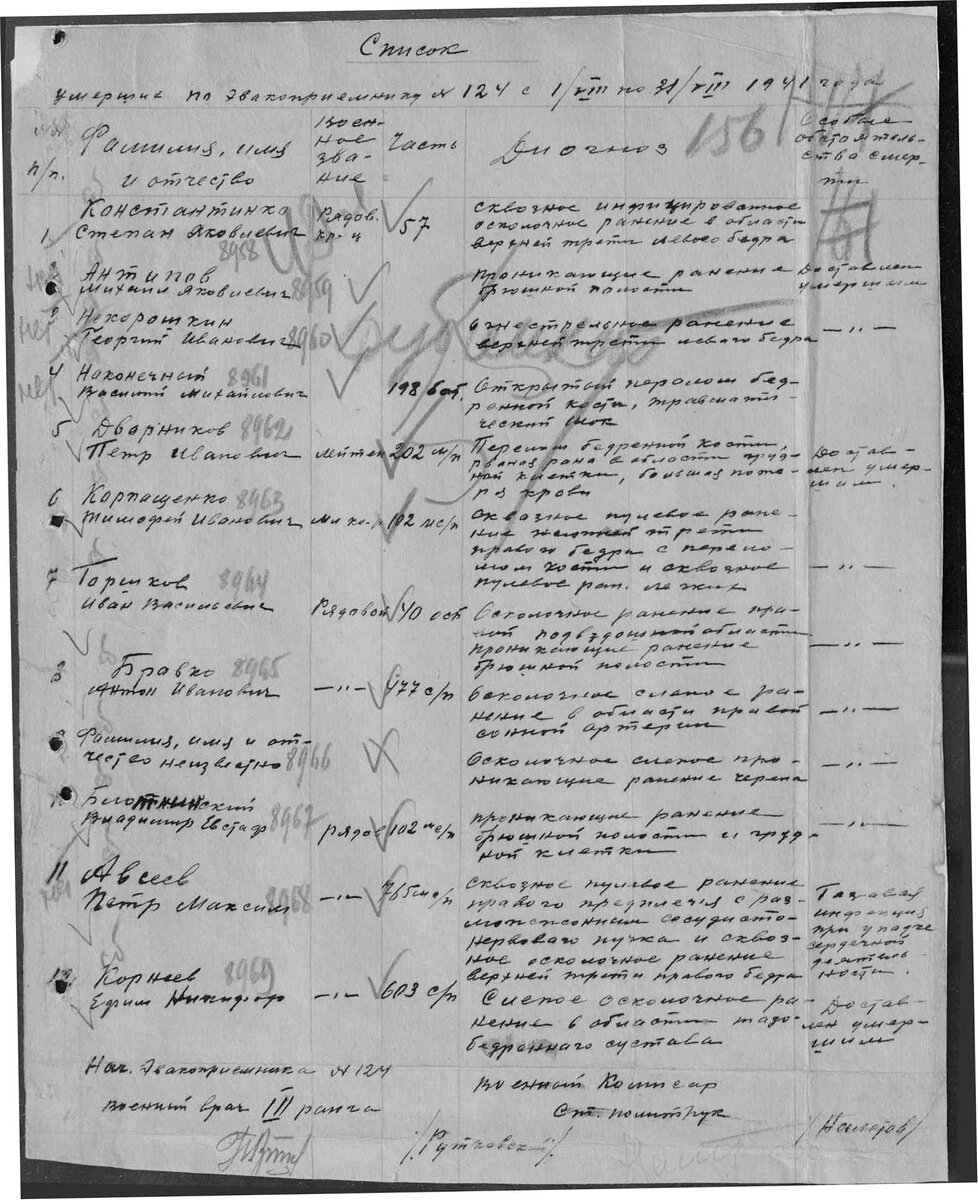 Список
умерших по эвакоприемнику № 124 с 1/VIII по 31/VIII 1941 года
156
п/п.
Фамилия, имя
и отчество
воен-
ное
зва-
ние
Часть
Диогноз
Особые
обстоятель-
ства смер-
ти
1
Константинко
Степан Яковлевич
8958
Рядов.
кр-ц
57
сквозное инфицированное
осколочное ранение в области
верхней трети левого бедра
Антипов
Михаил Яковлевич 8959
проникающие ранение
брюшной полости
Доставлен
умершим
нет
Нехорошкин
Георгий Иванович 8960
огнестрельное ранение
верхней трети левого бедра
— „ —
нет
4
Наконечный 8961
Василий Михайлович
198 бат.
Открытый перолом бед-
ренной кости, травмати-
ческий шок
5
Дворников 8962
Петр Иванович
лейтен
202 м/п
Перелом бедренной кости,
рваная рана в области груд-
ной клетки, большая поте-
ря крови
Достав-
лен умер-
шим.
6
Карпащенко 8963
Тимофей Иванович
102 мс/п
Сквозное пулевое ране-
ние нижней трети
правого бедра с перело-
мом кости и сквозное
пулевое ран. легких
— „ —
7
Горшков 8964
Иван Васильевич
Рядовой
40 осб
Осколочное ранение пра-
вой подвздошной области
проникающие ранение
брюшной полости
— „ —
8
Бравко 8965
Антон Иванович
— „ —
477 с/п
Осколочное слепое ра-
нение в области правой
сонной артерии
— „ —
Фамилия, имя и от-
чество неизвестно 8966
Осколочное слепое про-
никающие ранение черепа
— „ —
Владимир Евстаф 8967
рядов
102 мс/п
проникающие ранение
брюшной полости и груд-
ной клетки
— „ —
11
Авсеев
Петр Максим 8968
— „ —
сквозное пулевое ранение
правого предплечя с раз-
мозжонным сосудисто-
нервового пучка и сквоз-
ное осколочное ранение
верхней трети правого бедра
Газовая
инфекция
при упадке
сердечной
деятель-
ности.
12
Корнеев 8969
Ефим Никифор
— „ —
603 с/п
Слепое осколочное ра-
нение в области тазо-
бедренного сустава
Достав-
лен умер-
шим
Нач. Эвакоприемника № 124
военный врач III ранга
/Рутковск/
Военный Комисар
Ст. политрук